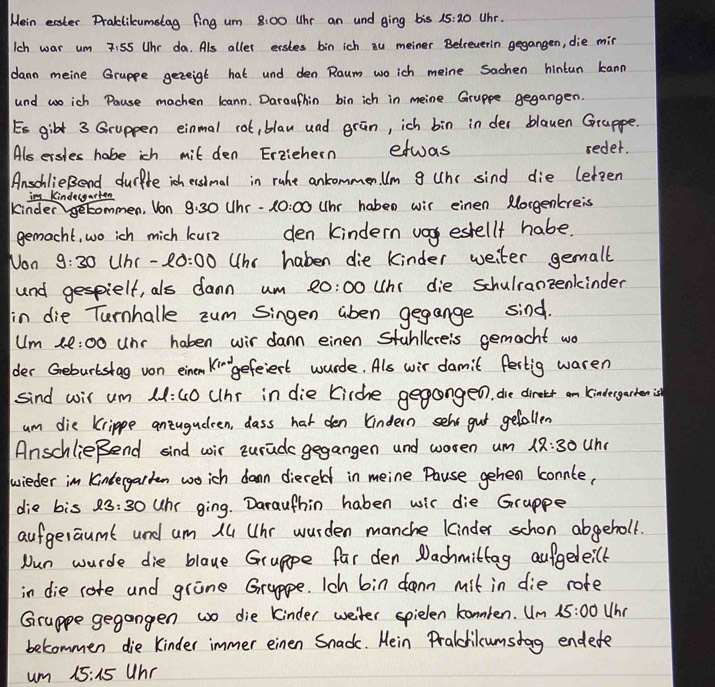 Mein erster Praktikumstag fing um 8:00 Uhr an und ging bis 15:20 Uhr.
Ich war um 7:55 Uhr da. Als aller erstes bin ich zu meiner Betreuerin gegangen, die mir
dann meine Gruppe gezeigt hat und den Raum wo ich meine Sachen hintun kann
und wo ich Pause machen kann. Daraufhin bin ich in meine Gruppe gegangen.
Es gibt 3 Gruppen einmal rot, blau und grün, ich bin in der blauen Gruppe.
Als erstes habe ich mit den Erziehern etwas redet.
Anschließend durfte ich erstmal in ruhe ankommen. Um 9 Uhr sind die letzen
im Kindergarten
Kinder gekommen. Von 9:30 Uhr - 10:00 Uhr haben wir einen Morgenkreis
gemacht, wo ich mich kurz den Kindern vog estellt habe.
Von 9:30 Uhr - 10:00 Uhr haben die Kinder weiter gemalt
und gespielt, als dann um 10:00 Uhr die Schulranzenkinder
in die Turnhalle zum Singen üben gegange sind.
Um 11:00 Uhr haben wir dann einen Stuhlkreis gemacht wo
der Geburtstag von einem Kind gefeiert wurde. Als wir damit fertig waren
sind wir um 11:40 Uhr in die Kirche gegangen, die direkt am Kindergarten ist
um die Krippe anzugucken, dass hat den Kindern sehr gut gefallen
Anschließend sind wir zurück gegangen und waren um 12:30 Uhr
wieder im Kindergarten wo ich dann dierekt in meine Pause gehen konnte,
die bis 13:30 Uhr ging. Daraufhin haben wir die Gruppe
aufgeräumt und um 14 Uhr wurden manche Kinder schon abgeholt.
Nun wurde die blaue Gruppe für den Nachmittag aufgeteilt
in die rote und grüne Gruppe. Ich bin dann mit in die rote
Gruppe gegangen wo die Kinder weiter spielen konnten. Um 15:00 Uhr
bekommen die Kinder immer einen Snack. Mein Praktikumstag endete
um 15:15 Uhr